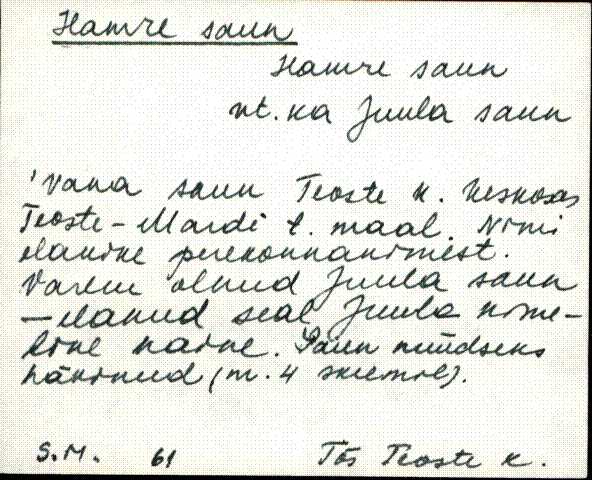 Hamre saun
Hamre saun
vt. ka Juula saun
'Vana saun Teoste k. keskosas
Teoste-Mardi t. maal. Nimi
elanike perekonnanimest.
Varem olnud Juula saun
– elanud seal Juula nime-
line naine. Saun nüüdseks
hävinud (m. 4 skeemil).
S.M. 61 Tõs Teoste k.